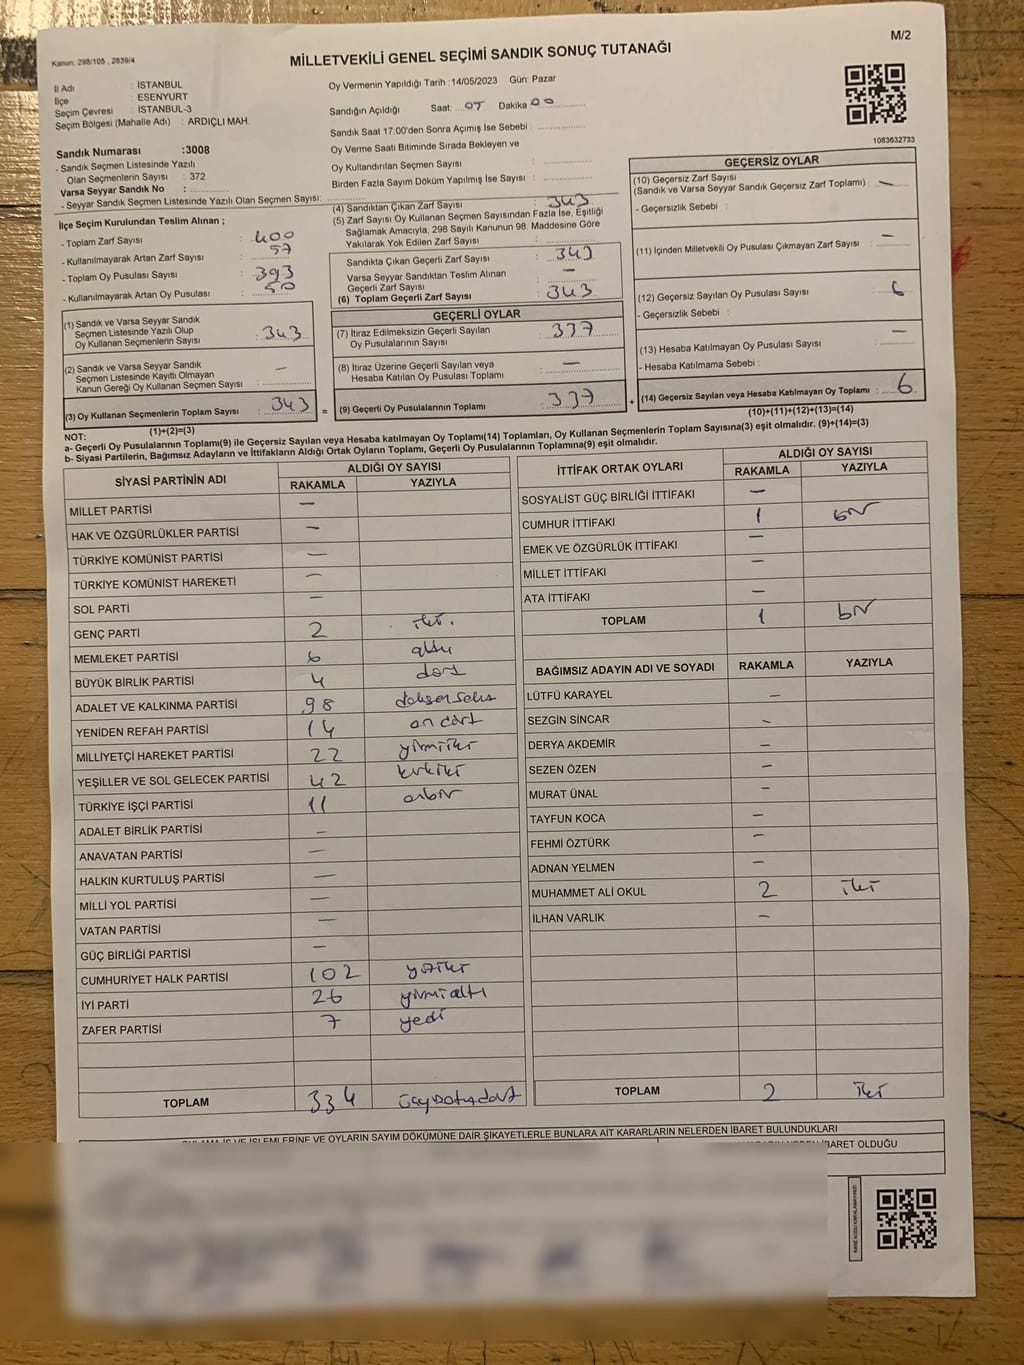 M/2
Kanun: 298/105 , 2839/4
MİLLETVEKİLİ GENEL SEÇİMİ SANDIK SONUÇ TUTANAĞI
İl Adı : İSTANBUL
İlçe : ESENYURT
Seçim Çevresi : İSTANBUL-3
Seçim Bölgesi (Mahalle Adı) : ARDIÇLI MAH.
Sandık Numarası :3008
- Sandık Seçmen Listesinde Yazılı
Olan Seçmenlerin Sayısı : 372
Varsa Seyyar Sandık No :
- Seyyar Sandık Seçmen Listesinde Yazılı Olan Seçmen Sayısı:
Oy Vermenin Yapıldığı Tarih :14/05/2023 Gün: Pazar
Sandığın Açıldığı Saat: 05 Dakika 00
Sandık Saat 17:00'den Sonra Açımış İse Sebebi :
Oy Verme Saati Bitiminde Sırada Bekleyen ve
Oy Kullandırılan Seçmen Sayısı :
Birden Fazla Sayım Döküm Yapılmış İse Sayısı :
1083632733
İlçe Seçim Kurulundan Teslim Alınan ;
- Toplam Zarf Sayısı : 400
- Kullanılmayarak Artan Zarf Sayısı : 57
- Toplam Oy Pusulası Sayısı : 393
- Kullanılmayarak Artan Oy Pusulası : 50
(1) Sandık ve Varsa Seyyar Sandık
Seçmen Listesinde Yazılı Olup
Oy Kullanan Seçmenlerin Sayısı : 343
(2) Sandık ve Varsa Seyyar Sandık
Seçmen Listesinde Kayıtlı Olmayan
Kanun Gereği Oy Kullanan Seçmen Sayısı : —
(3) Oy Kullanan Seçmenlerin Toplam Sayısı : 343 =
(1)+(2)=(3)
(4) Sandıktan Çıkan Zarf Sayısı : 343
(5) Zarf Sayısı Oy Kullanan Seçmen Sayısından Fazla İse, Eşitliği
Sağlamak Amacıyla; 298 Sayılı Kanunun 98. Maddesine Göre
Yakılarak Yok Edilen Zarf Sayısı :
Sandıkta Çıkan Geçerli Zarf Sayısı : 343
Varsa Seyyar Sandıktan Teslim Alınan
Geçerli Zarf Sayısı : —
(6) Toplam Geçerli Zarf Sayısı : 343
GEÇERLİ OYLAR
(7) İtiraz Edilmeksizin Geçerli Sayılan
Oy Pusulalarının Sayısı : 337
(8) İtiraz Üzerine Geçerli Sayılan veya
Hesaba Katılan Oy Pusulası Toplamı : —
(9) Geçerli Oy Pusulalarının Toplamı : 337 +
GEÇERSİZ OYLAR
(10) Geçersiz Zarf Sayısı
(Sandık ve Varsa Seyyar Sandık Geçersiz Zarf Toplamı) : —
- Geçersizlik Sebebi :
(11) İçinden Milletvekili Oy Pusulası Çıkmayan Zarf Sayısı : —
(12) Geçersiz Sayılan Oy Pusulası Sayısı : 6
- Geçersizlik Sebebi :
(13) Hesaba Katılmayan Oy Pusulası Sayısı : —
- Hesaba Katılmama Sebebi :
(14) Geçersiz Sayılan veya Hesaba Katılmayan Oy Toplamı : 6
(10)+(11)+(12)+(13)=(14)
NOT:
a- Geçerli Oy Pusulalarının Toplamı(9) ile Geçersiz Sayılan veya Hesaba katılmayan Oy Toplamı(14) Toplamları, Oy Kullanan Seçmenlerin Toplam Sayısına(3) eşit olmalıdır. (9)+(14)=(3)
b- Siyasi Partilerin, Bağımsız Adayların ve İttifakların Aldığı Ortak Oyların Toplamı, Geçerli Oy Pusulalarının Toplamına(9) eşit olmalıdır.
SİYASİ PARTİNİN ADI ALDIĞI OY SAYISI
RAKAMLA YAZIYLA
MİLLET PARTİSİ —
HAK VE ÖZGÜRLÜKLER PARTİSİ —
TÜRKİYE KOMÜNİST PARTİSİ —
TÜRKİYE KOMÜNİST HAREKETİ —
SOL PARTİ —
GENÇ PARTİ 2 iki.
MEMLEKET PARTİSİ 6 altı
BÜYÜK BİRLİK PARTİSİ 4 dört
ADALET VE KALKINMA PARTİSİ 98 doksansekiz
YENİDEN REFAH PARTİSİ 14 on dört
MİLLİYETÇİ HAREKET PARTİSİ 22 yirmiiki
YEŞİLLER VE SOL GELECEK PARTİSİ 42 kırkiki
TÜRKİYE İŞÇİ PARTİSİ 11 onbir
ADALET BİRLİK PARTİSİ —
ANAVATAN PARTİSİ —
HALKIN KURTULUŞ PARTİSİ —
MİLLİ YOL PARTİSİ —
VATAN PARTİSİ —
GÜÇ BİRLİĞİ PARTİSİ —
CUMHURİYET HALK PARTİSİ 102 yüziki
İYİ PARTİ 26 yirmialtı
ZAFER PARTİSİ 7 yedi
TOPLAM 334 üçyüzotuzdört
İTTİFAK ORTAK OYLARI ALDIĞI OY SAYISI
RAKAMLA YAZIYLA
SOSYALİST GÜÇ BİRLİĞİ İTTİFAKI —
CUMHUR İTTİFAKI 1 bir
EMEK VE ÖZGÜRLÜK İTTİFAKI —
MİLLET İTTİFAKI —
ATA İTTİFAKI —
TOPLAM 1 bir
BAĞIMSIZ ADAYIN ADI VE SOYADI RAKAMLA YAZIYLA
LÜTFÜ KARAYEL —
SEZGİN SİNCAR —
DERYA AKDEMİR —
SEZEN ÖZEN —
MURAT ÜNAL —
TAYFUN KOCA —
FEHMİ ÖZTÜRK —
ADNAN YELMEN —
MUHAMMET ALİ OKUL 2 iki
İLHAN VARLIK —
TOPLAM 2 iki
İŞLEMLERİNE VE OYLARIN SAYIM DÖKÜMÜNE DAİR ŞİKAYETLERLE BUNLARA AİT KARARLARIN NELERDEN İBARET BULUNDUKLARI
İBARET OLDUĞU